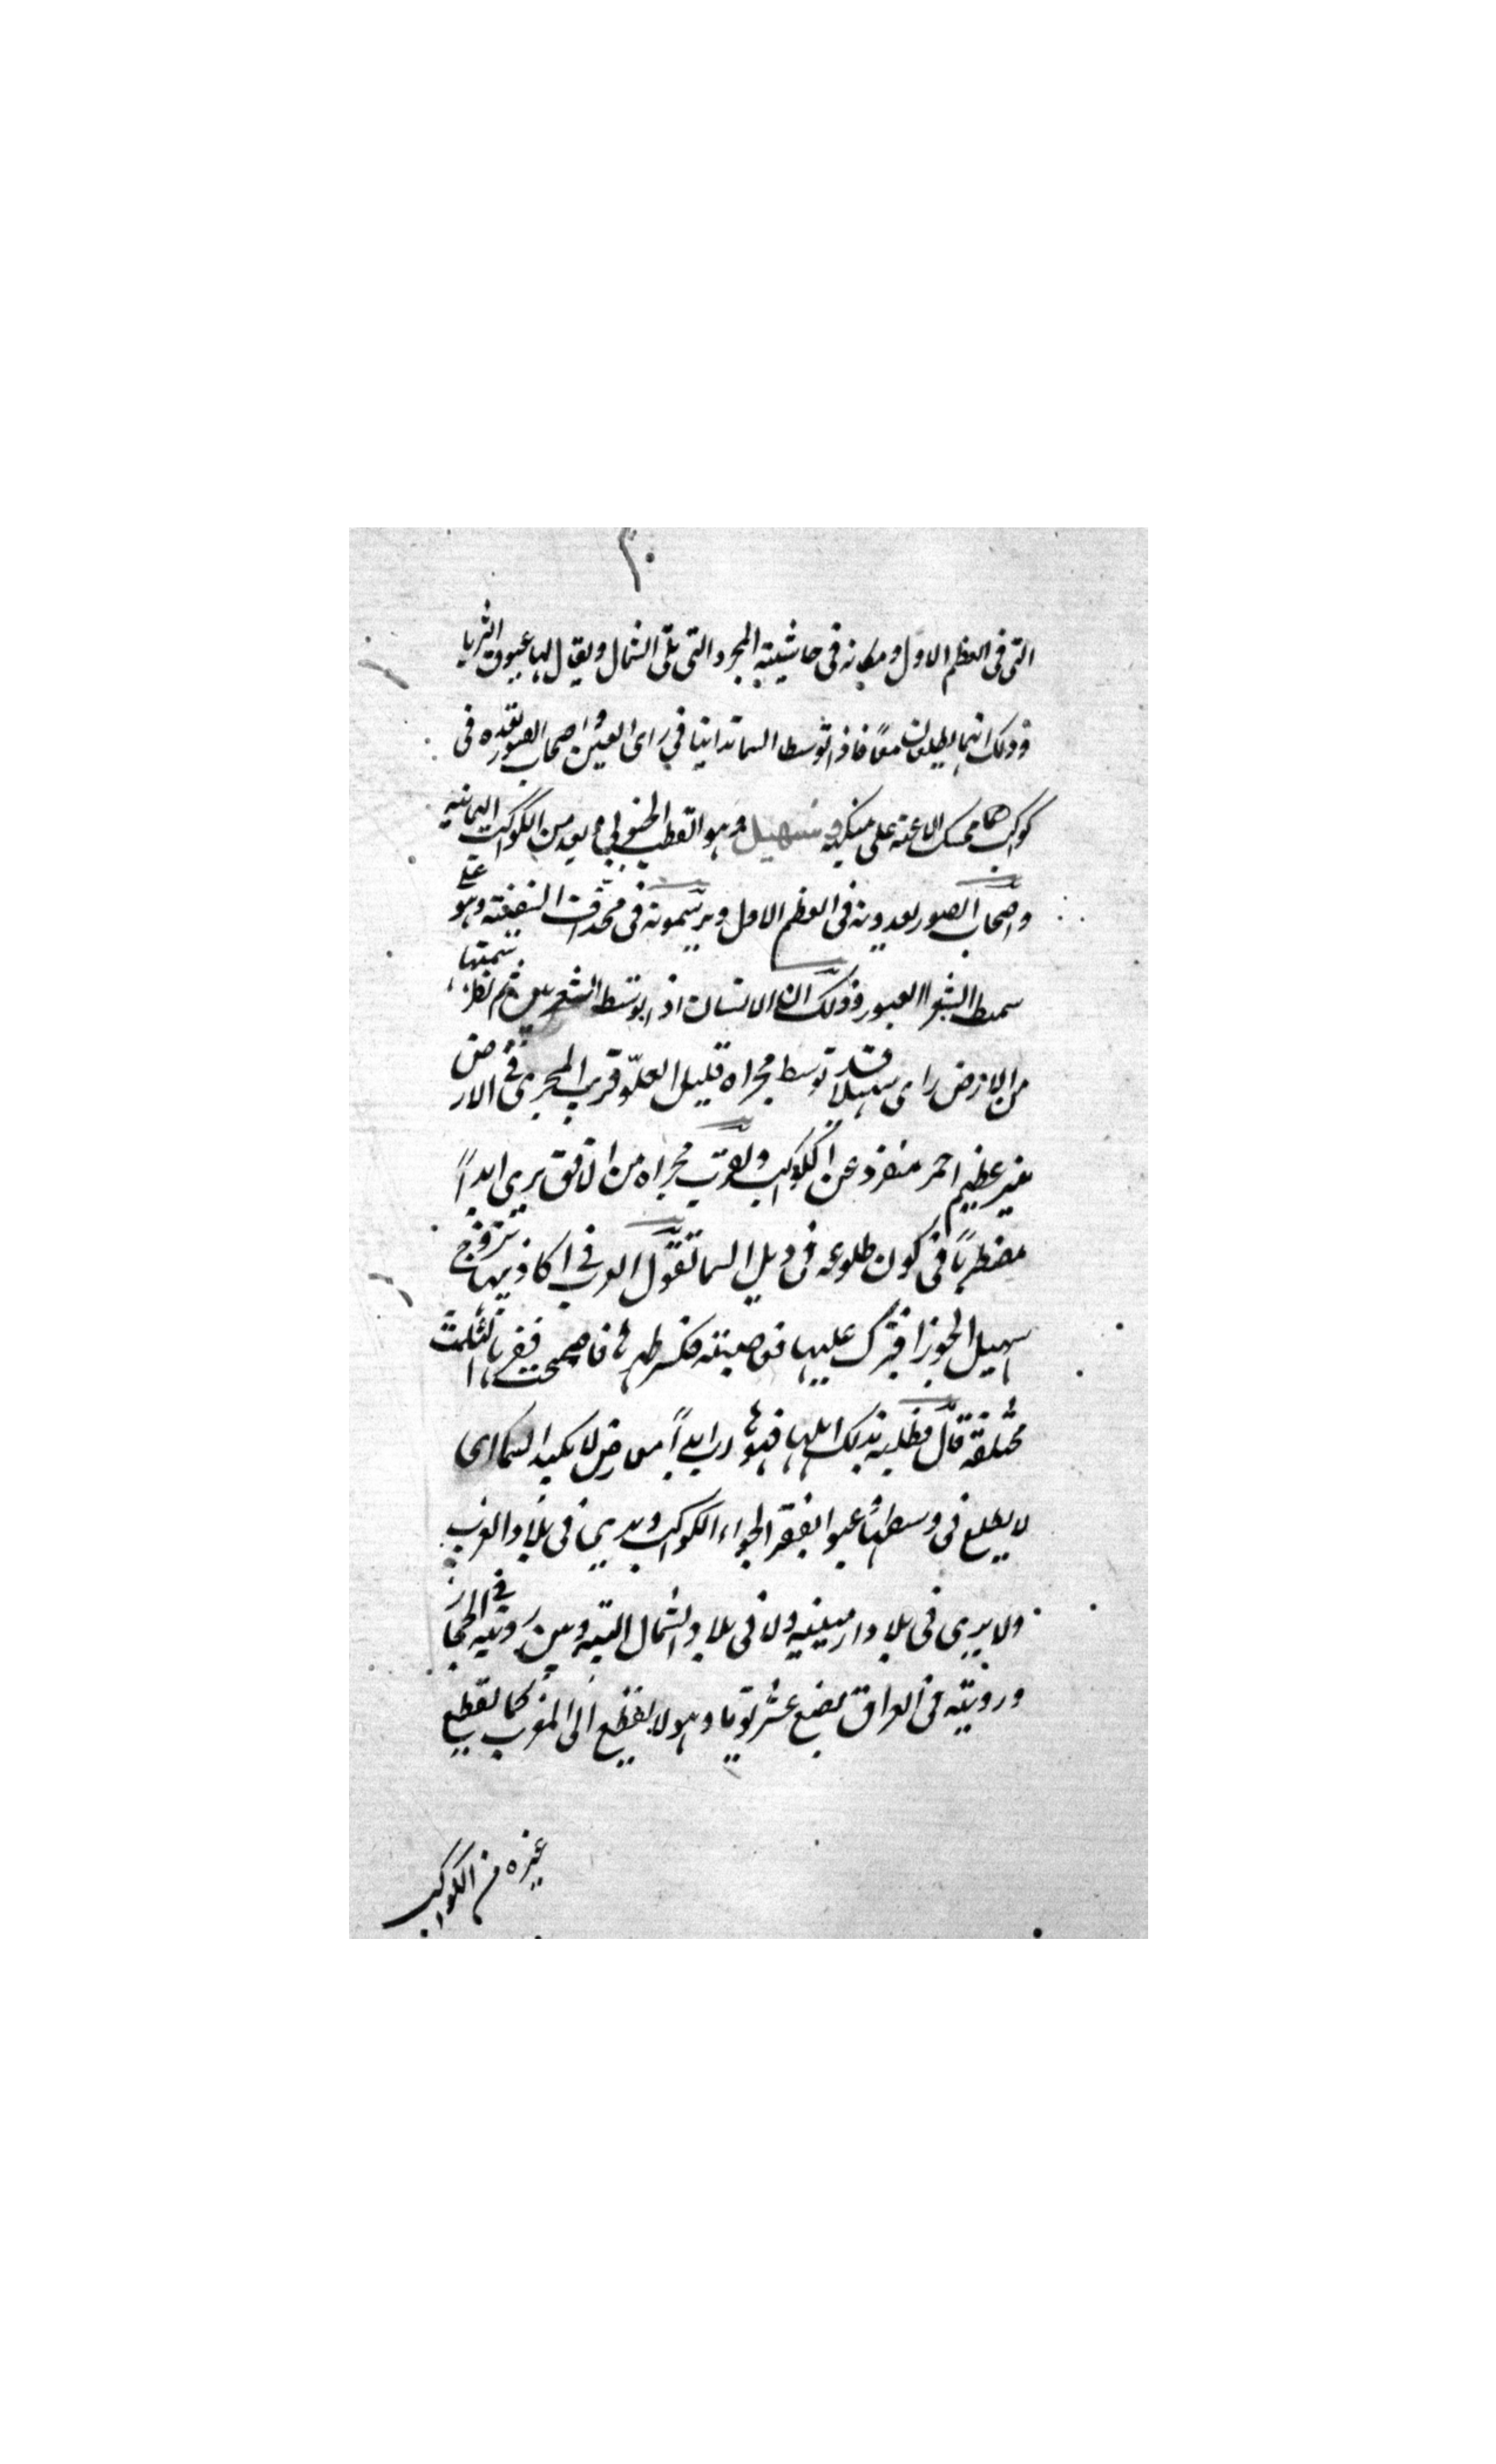 ٢٠
التى فى العظم الاول ومكانه فى حاشيته المجره التى تلى الشمال ويقال لها عيوق الثريا
وذلك انهما يطلعان معًا فاذا توسطا السما تدانيا في راى العين واصحاب الصور تعده فى
كواكب ممسك الاعنه على منكبه سهيل وهو القطب الجنوبي ويعد من الكواكب اليمانيه
واصحاب الصور يعدونه فى العظم الاول ويرسمونه فى مجداف السفينه وهو على
سمط الشعرا العبور وذلك ان الانسان اذا توسط الشعريين ثم نظر سمتها
من الارض راى سهيلا قد توسط مجراه قليل العلو قريب المجرى فى الارض
نير عظيم احمر منفرد عن الكواكب ولقرب مجراه من الافق يرى ابداً
مضطربًا فى كون طلوعه فى ذيل السما تقول العرب في اكاذيبها تزوج
سهيل الجوزا فبرك عليها فكسر ظهرها فاصبحت
قال فطلبه بذلك اهلها فهو هارب ابداً لا بكبد السما اى
لا يطلع فى وسطها الكواكب ويرى فى بلاد العرب
ولا يرى فى بلاد ارمينيه ولا فى بلاد الشمال البته وبين رويته فى الحجاز
ورويته فى العراق بضع عشر يوما وهو لا يقطع الى المغرب كما يقطع
غيره من الكواكب